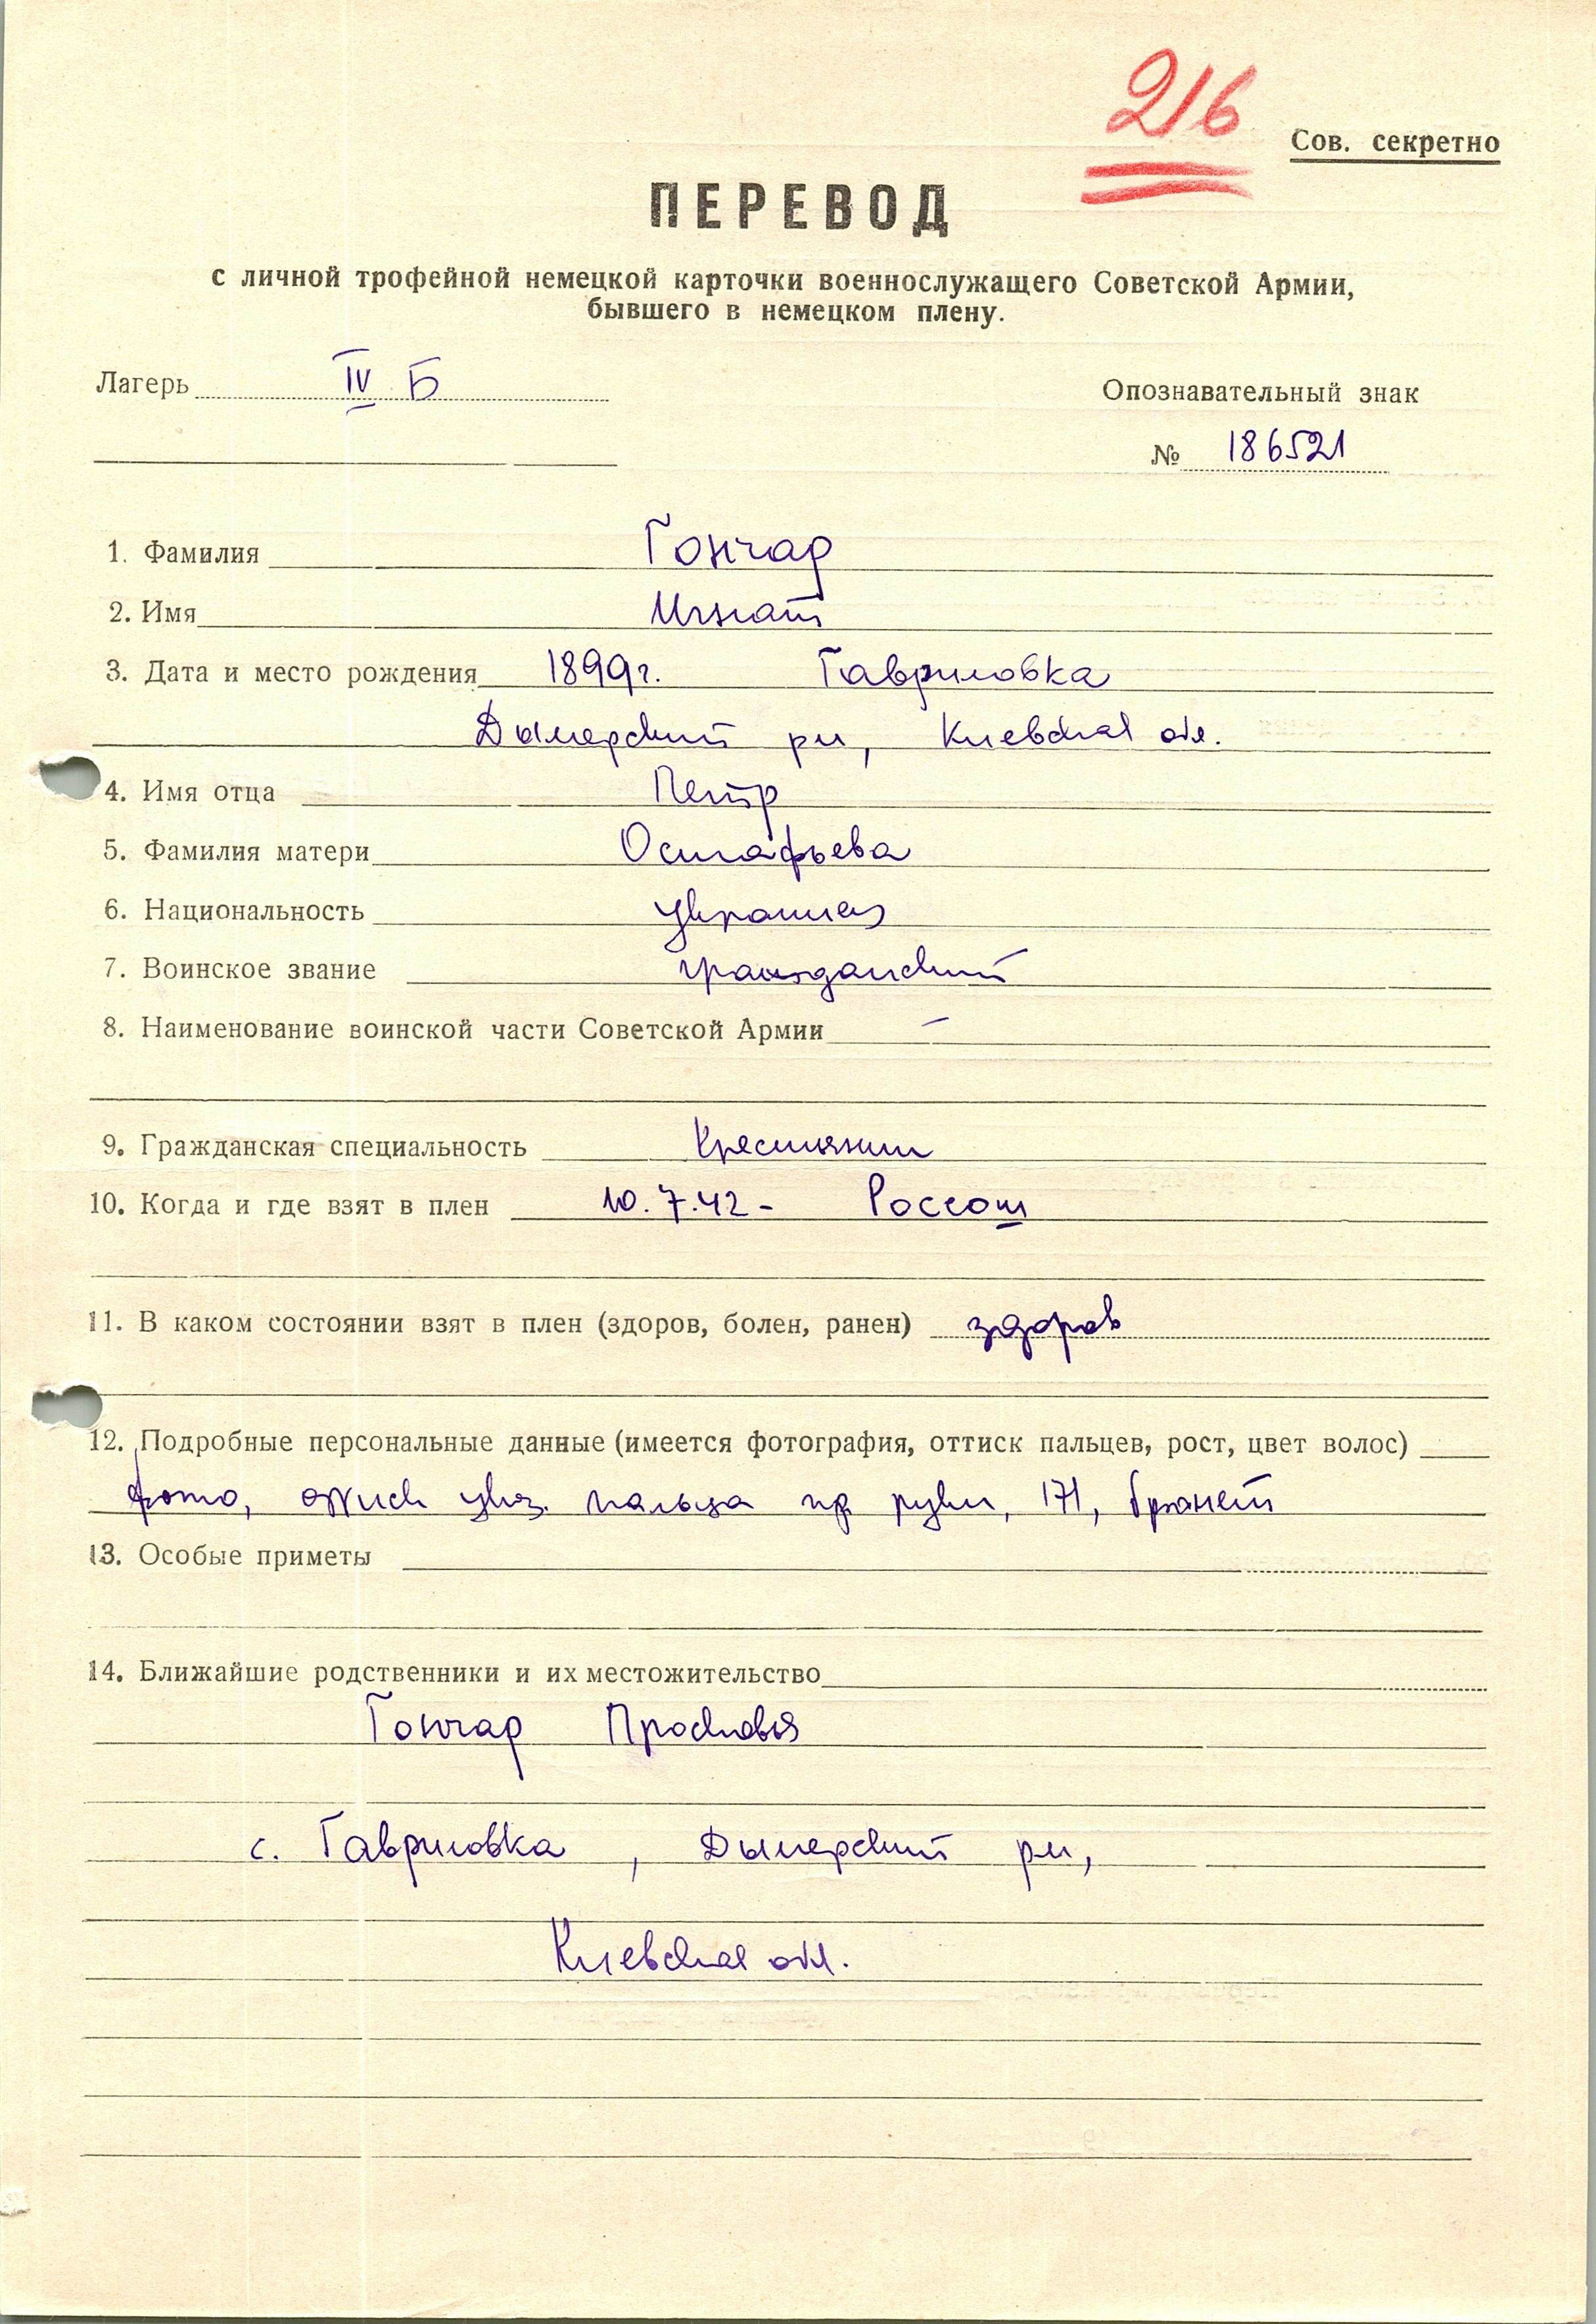 216
Сов. секретно
ПЕРЕВОД
с личной трофейной немецкой карточки военнослужащего Советской Армии,
бывшего в немецком плену.
Лагерь IV Б
Опознавательный знак
№ 186521
1. Фамилия Гончар
2. Имя Игнат
3. Дата и место рождения 1899г. Гавриловка
Дымерский рн, Киевская обл.
4. Имя отца Петр
5. Фамилия матери Остафьева
6. Национальность украинец
7. Воинское звание гражданский
8. Наименование воинской части Советской Армии –
9. Гражданская специальность Крестьянин
10. Когда и где взят в плен 10.7.42 - Россош
11. В каком состоянии взят в плен (здоров, болен, ранен) здоров
12. Подробные персональные данные (имеется фотография, оттиск пальцев, рост, цвет волос)
фото, оттиск указ. пальца пр руки, 171, брюнет
13. Особые приметы
14. Ближайшие родственники и их местожительство
Гончар Просковья
с. Гавриловка, Дымерский рн,
Киевская обл.